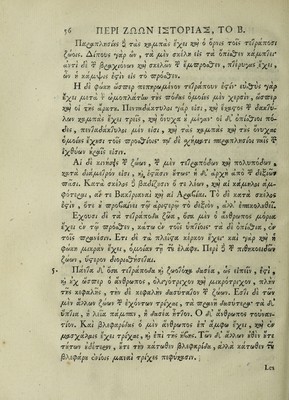 56 ΠΕΡΙ ΖΩΩΝ ΙΣΤΟΡΙΑΣ, ΤΟ Β.
Παραπλησίως τὰς καμπὰς ἔχει καὶ ὁ ὄρνις τοῖς τετράποσι
ζώοις. Δίπους γὰρ ὢν, τὰ μὲν σκέλη εἰς τὰ ὄπισθεν κάμπτει·
ἀντὶ δὲ βραχιόνων καὶ σκελῶν ἔμπροσθεν, πτέρυγας ἔχει,
ὧν ἡ κάμψις ἐστὶν εἰς τὸ πρόσθεν.
Ἡ δὲ φώκη ὥσπερ πεπηρωμένον τετράπουν ἐστίν· εὐθὺς γὰρ
ἔχει μετὰ τὴν ὠμοπλάτην τοὺς πόδας ὁμοίους μὲν χερσὶν, ὥσπερ
καὶ οἱ τῆς ἄρκτου. Πενταδάκτυλοι γάρ εἰσι, καὶ ἕκαστος δακτύ-
λων καμπὰς ἔχει τρεῖς, καὶ ὄνυχα οὐ μέγαν· οἱ δ' ὀπίσθιοι πό-
δες, πενταδάκτυλοι μέν εἰσι, καὶ τὰς καμπὰς καὶ τοὺς ὄνυχας
ὁμοίους ἔχουσι τοῖς προσθίοις· τῷ δὲ σχήματι παραπλήσιοι ταῖς
ἰχθύων οὐραῖς εἰσιν.
Αἱ δὲ κινήσεις ζώων, μὲν τετραπόδων καὶ πολυπόδων,
κατὰ διάμετρόν εἰσι, καὶ ἑστᾶσιν οὕτως· ἡ δ' ἀρχὴ ἀπὸ δεξιῶν
πᾶσι. Κατὰ σκέλος βαδίζουσι ὅ τε λέων, καὶ αἱ κάμηλοι ἀμ-
φότεραι, αἵ τε Βακτριαναὶ καὶ αἱ Ἀράβιαι. Τὸ δὲ κατὰ σκέλος
ἐστὶν, ὅτε οὐ προβαίνει τῷ ἀριστερῷ τὸ δεξιὸν, ἀλλ' ἐπακολουθεῖ.
Ἔχουσι δὲ τὰ τετράποδα ζῶα, ὅσα μὲν ὁ ἄνθρωπος μόρια
ἔχει ἐν τῷ πρόσθεν, κάτω ἐν τοῖς ὑπτίοις· τὰ δὲ ὀπίσθια, ἐν
τοῖς πρανέσιν. Ἔτι δὲ τὰ πλεῖστα κέρκον ἔχει· καὶ γὰρ καὶ ἡ
φώκη μικρὰν ἔχει, ὁμοίαν τῇ τοῦ ἐλάφου. Περὶ δὲ πιθηκοειδῶν
ζώων, ὕστερον διορισθήσεται.
5. Πάντα δ' ὅσα τετράποδα καὶ ζωοτόκα δασέα, ὡς εἰπεῖν, ἐστί,
καὶ οὐχ ὥσπερ ὁ ἄνθρωπος, ὀλιγότριχον καὶ μικρότριχον, πλὴν
τῆς κεφαλῆς, τὴν δὲ κεφαλὴν δασύτατον ζώων. Ἔτι δὲ τῶν
μὲν ἄλλων ζώων ἐχόντων τρίχας, τὰ πρανῆ δασύτερα· τὰ δ'
ὕπτια, ἢ λεῖα πάμπαν, ἢ δασέα ἧττον. Ὁ δ' ἄνθρωπος τοὐναν-
τίον. Καὶ βλεφαρίδας ὁ μὲν ἄνθρωπος ἐπ' ἄμφω ἔχει, καὶ ἐν
μασχάλαις ἔχει τρίχας, καὶ ἐπὶ τῆς ἥβης. Τῶν δ' ἄλλων οὐδὲν οὔτε
τούτων οὐδέτερον, οὔτε τὴν κάτωθεν βλεφαρίδα, ἀλλὰ κάτωθεν τοῦ
βλεφάρου ἐνίοις μαναὶ τρίχες πεφύκασιν.